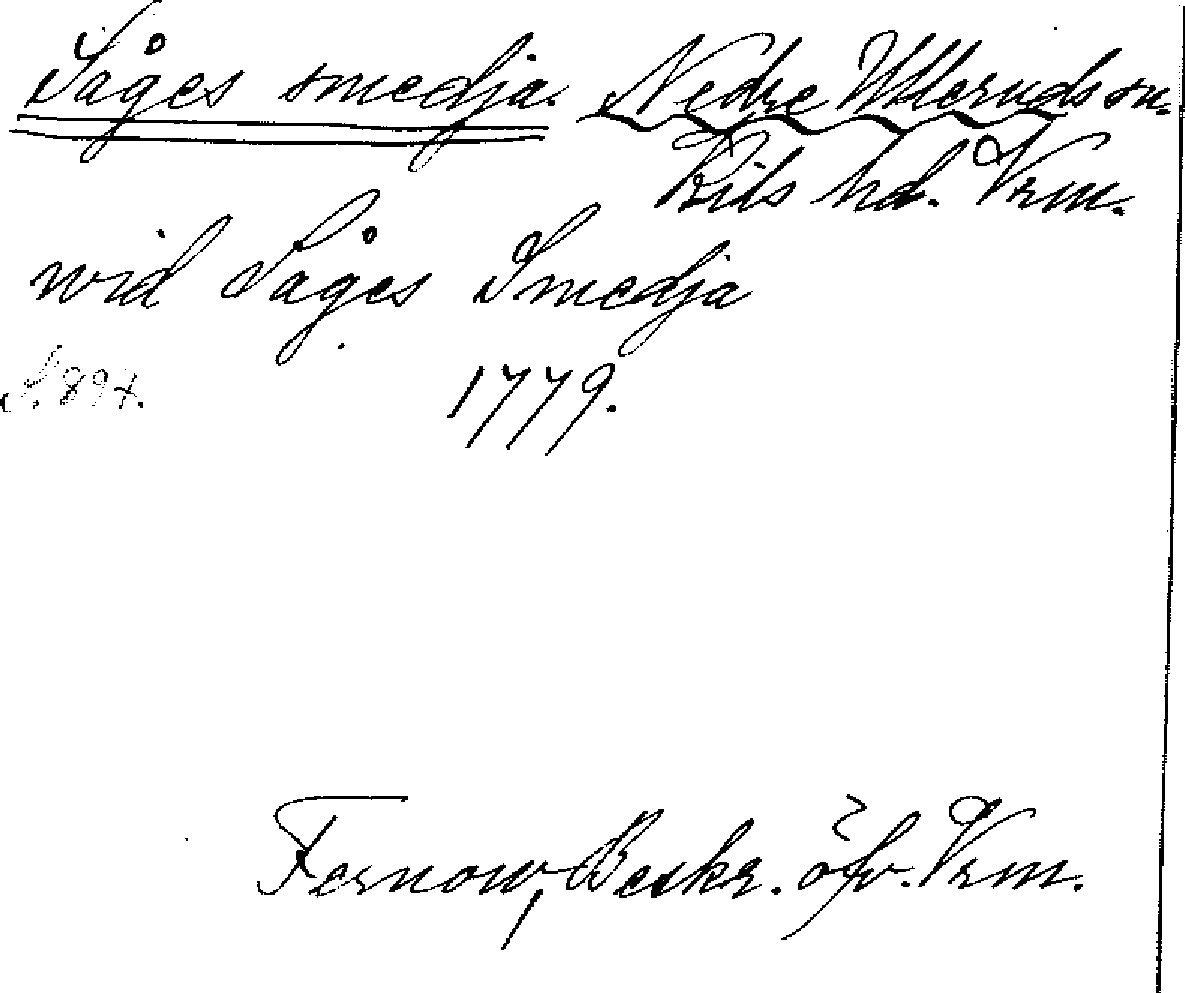 Såges smedja. Nedre Ulleruds sn.
Kils hd. Vrm.
wid Såges Smedja
S. 894. 1779.
Fernow, Beskr. öfv. Vrm.